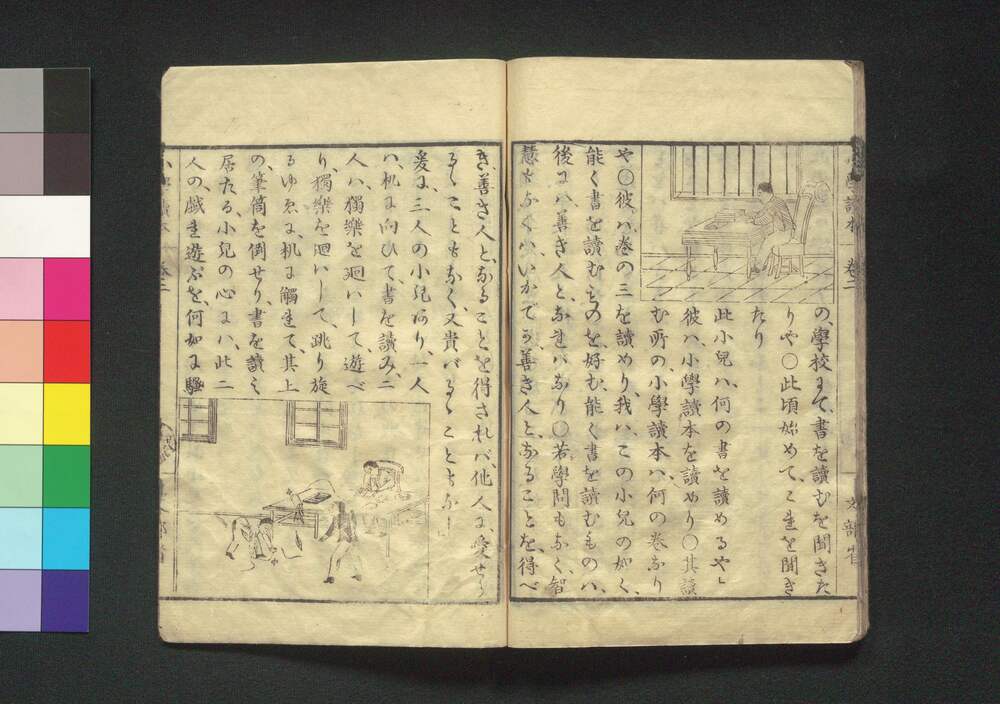 の、學校にて、書を讀むを聞きた
りや〇此頃始めて、これを聞き
たり
此小兒ハ、何の書を讀めるや」
彼ハ、小學讀本を讀めり〇其讀
む所の、小學讀本ハ、何の卷なり
や〇彼ハ、卷の三を讀めり、我ハ、この小兒の如く、
能く書を讀むものを、好む、能く書を讀むものハ、
後にハ善き人と、なればなり〇若學問もなく、智
慧もなくハ、いかでか善き人と、なることを、得べ
き、善き人と、なることを得ざれバ、他人に、愛せら
るゝこともなく、又貴バるゝこともなし
爰に、三人の小兒あり、一人
ハ、机に向ひて、書を讀み、二
人ハ、獨樂を廻ハして、遊べ
り、獨樂を廻ハして、跳り旋
るゆゑに、机に觸れて、其上
の、筆筒を倒せり、書を讀み
居たる、小兒の心にハ、此二
人の、戯れ遊ぶを、何如に騷
小學讀本 卷三 文部省